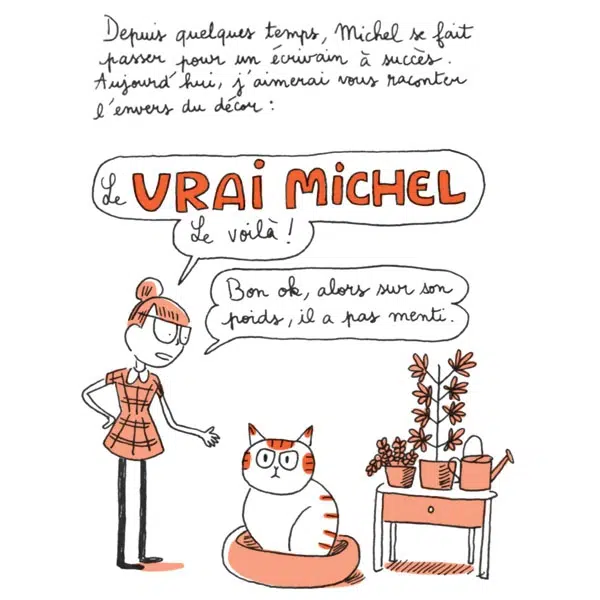 Depuis quelques temps, Michel se fait
passer pour un écrivain à succès.
Aujourd'hui, j'aimerai vous raconter
l'envers du décor :
Le VRAI MICHEL
Le voilà !
Bon ok, alors sur son
poids, il a pas menti.